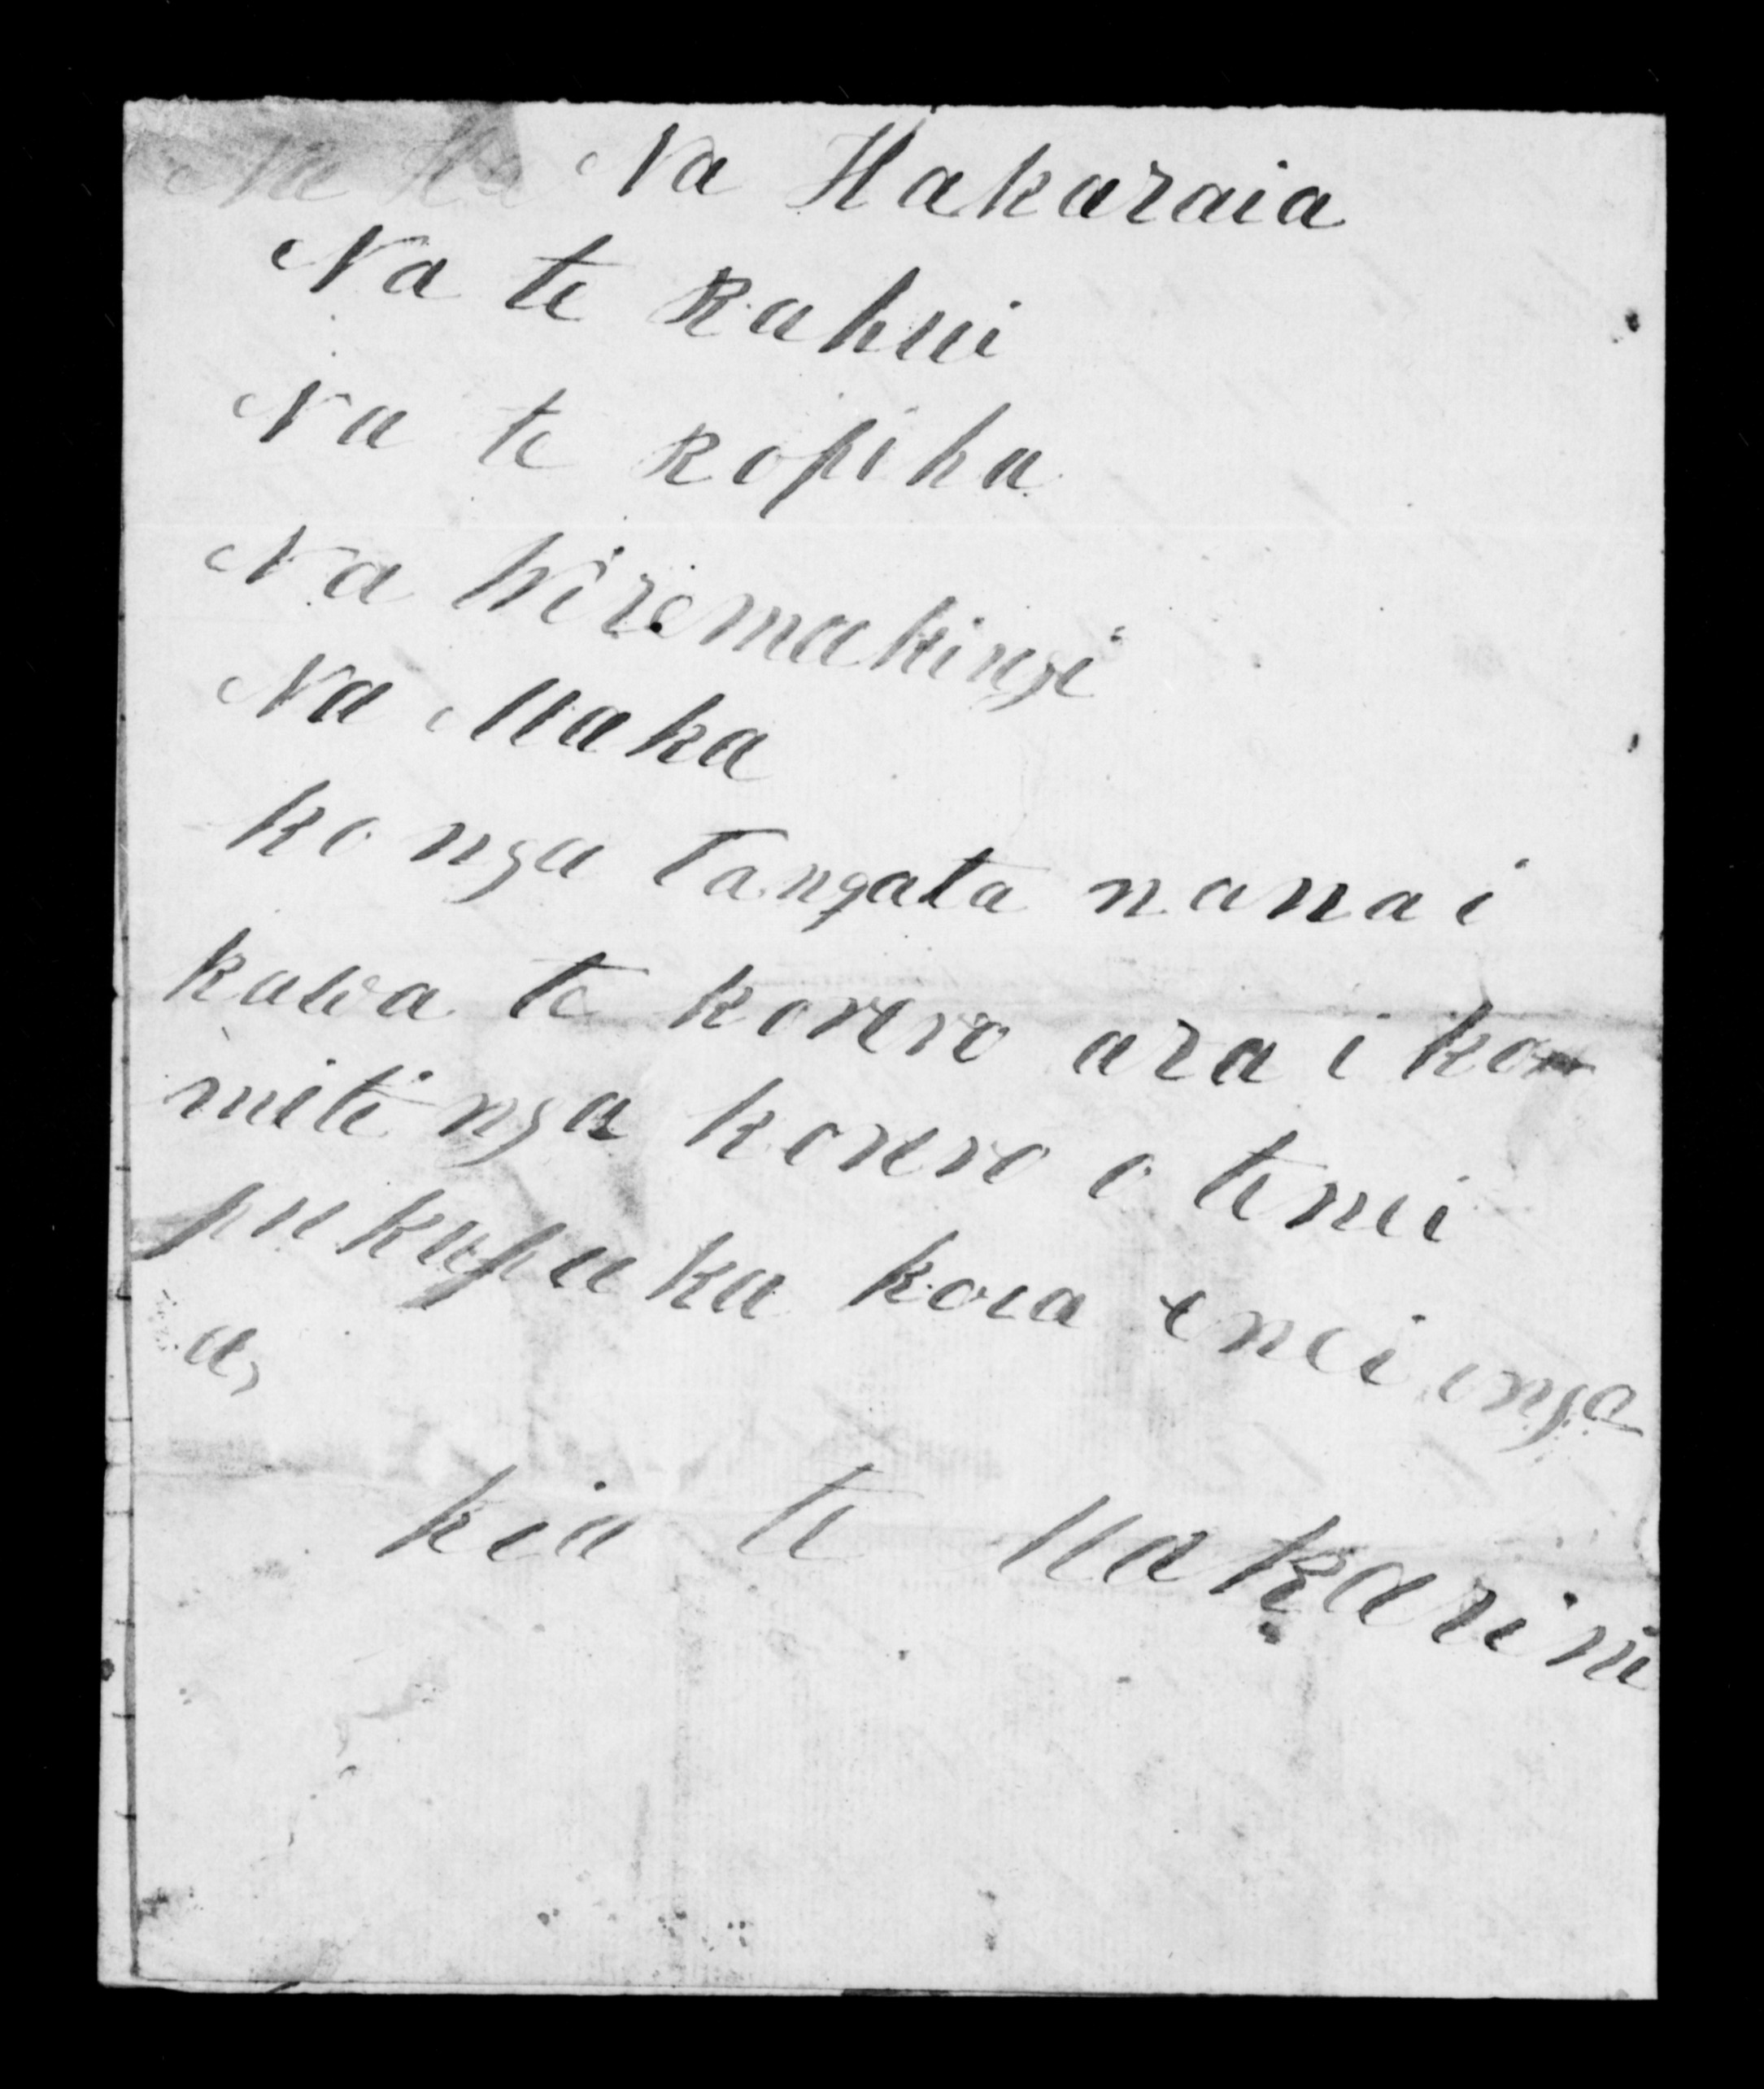 Na Hakaraia
Na te Kahui
Na te Kopiha
Na Wiremakingi
Na Maka
ko nga Tangata nana i
kawa te korero ara i ko
miti nga korero o tenei
pukapuka koia enei inga
a,
kia te Makarini